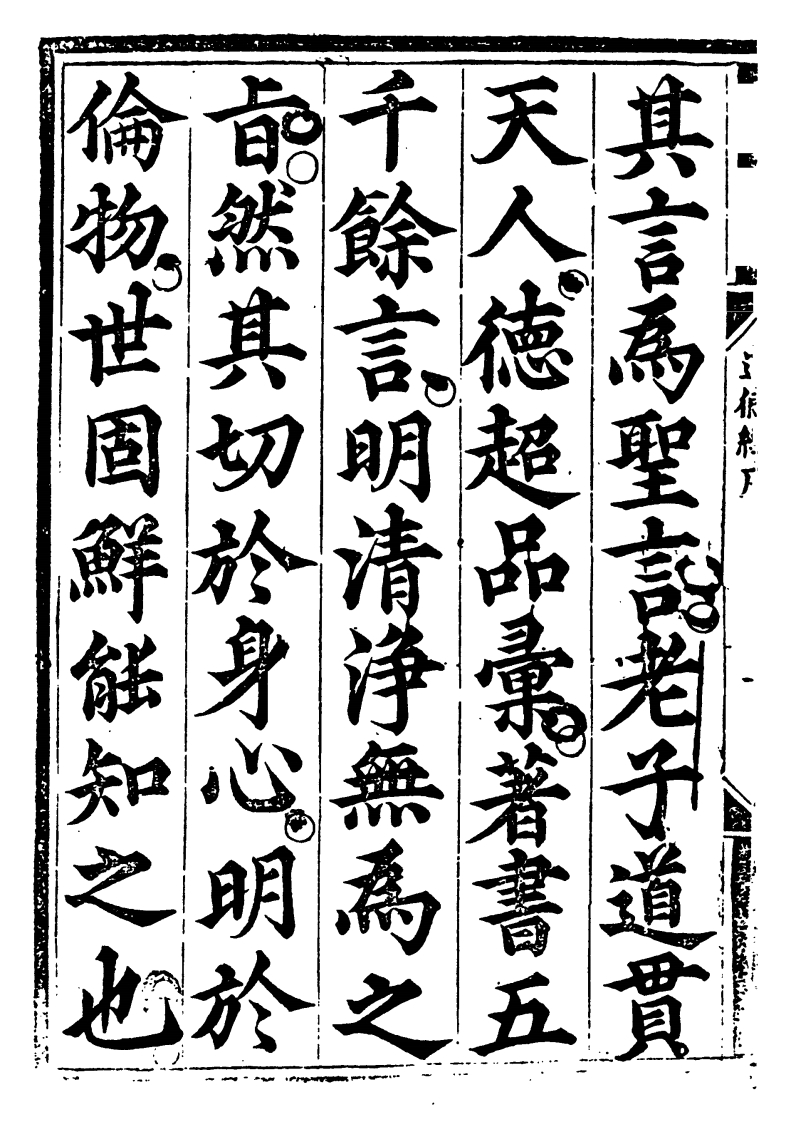 其言爲聖言老子道貫
天人德超品彙著書五
千餘言明清淨無爲之
旨然其切於身心明於
倫物世固鮮能知之也